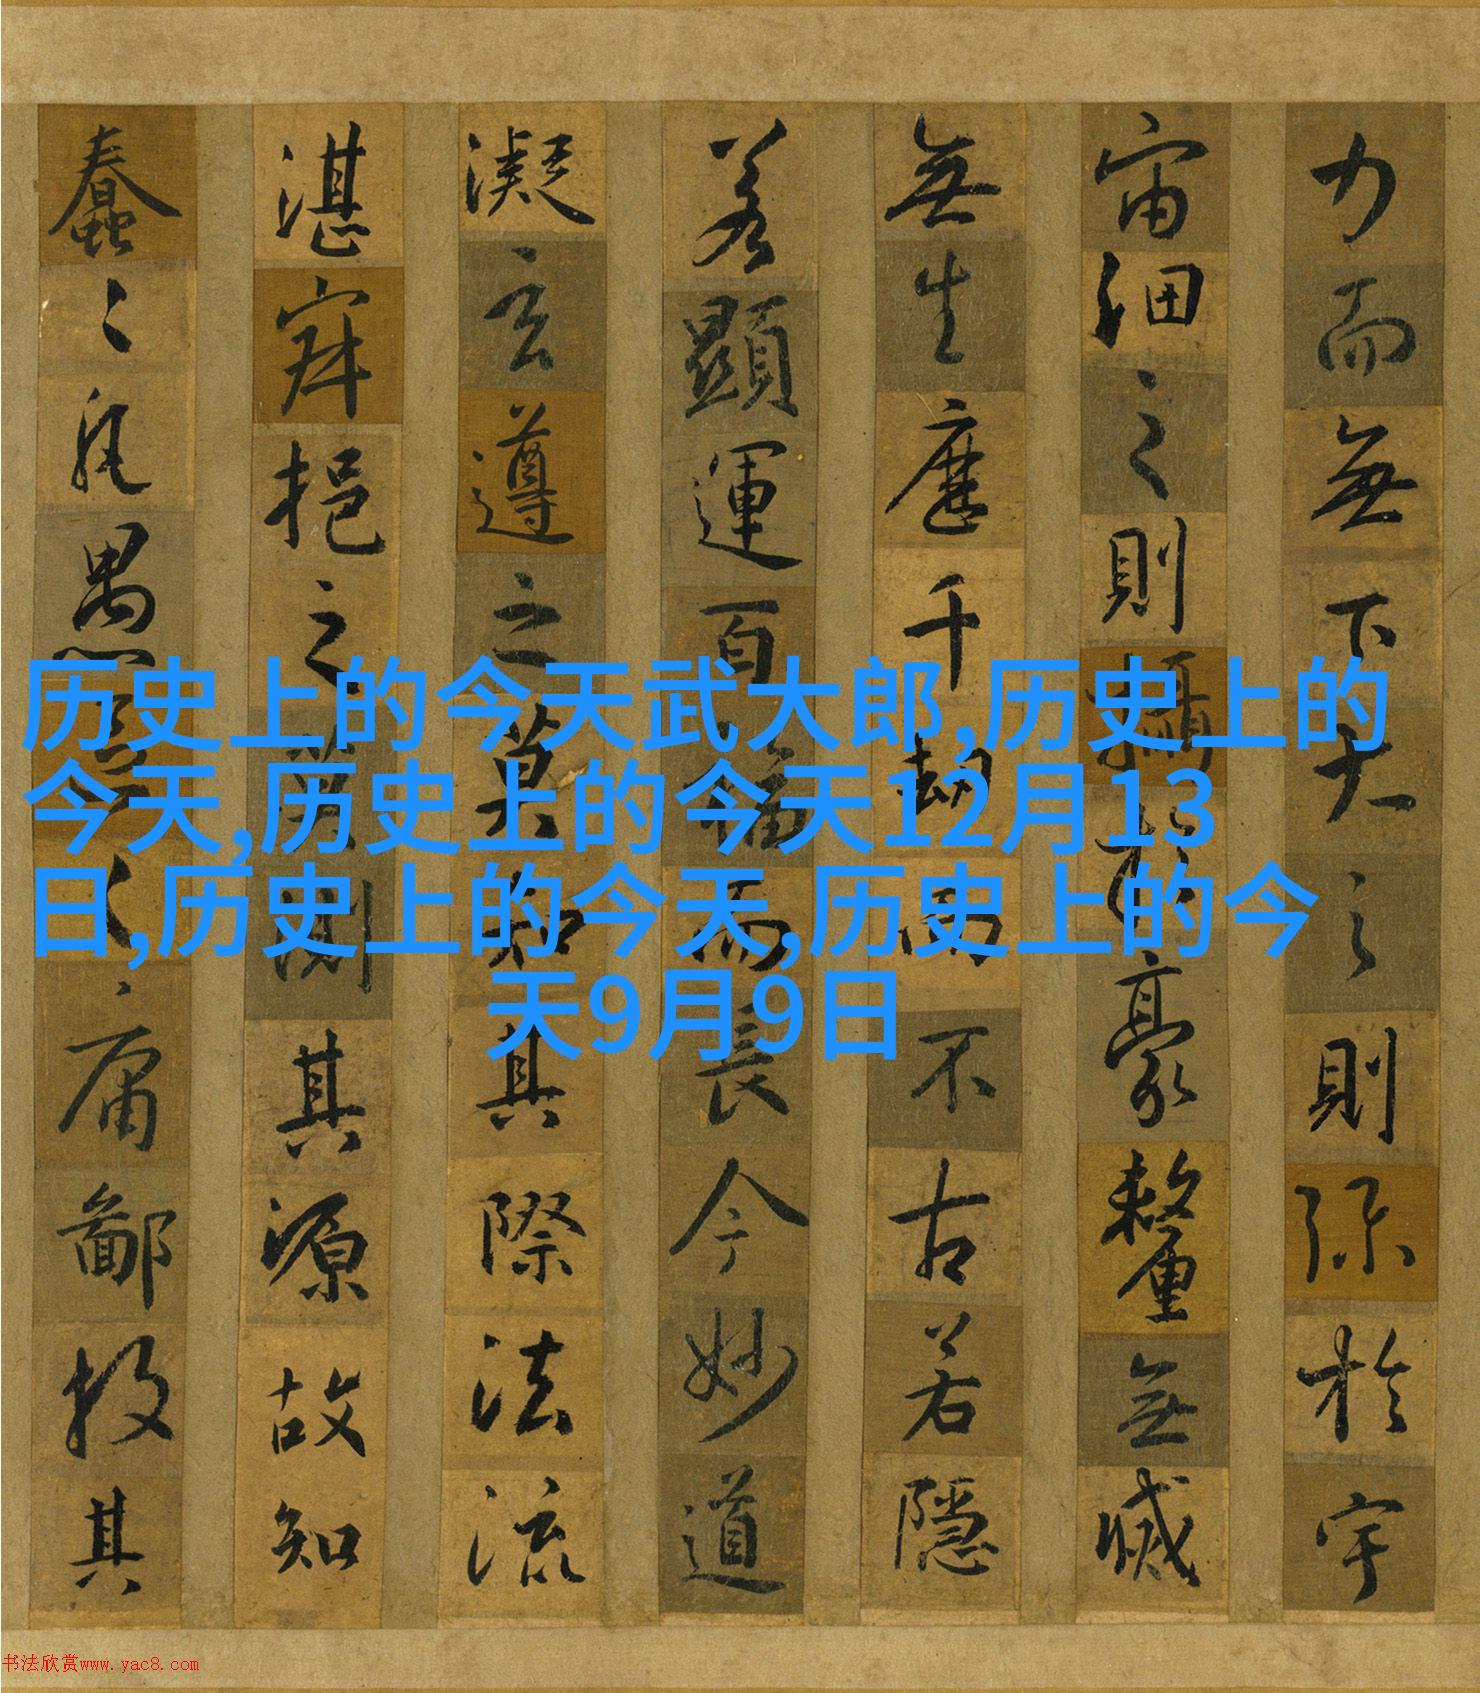 力而無下大之則弥於宇
宙細之則攝於豪釐無滅
無生歷千劫而不古若隱
若顯運百福而長今妙道
凝玄遵之莫知其際法流
湛寂挹之莫測其源故知
蠢〻凡愚區〻庸鄙投其
历史上的今天武大郎,历史上的
今天,历史上的今天12月13
日,历史上的今天,历史上的今
天9月9日
书法欣赏www.yac8.com